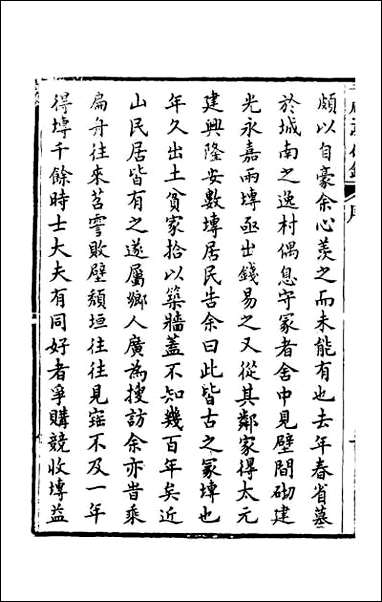 頗以自豪余心羨之而未能有也去年春省墓
於城南之逸村偶息守冢者舍中見壁間砌建
光永嘉兩塼亟出錢易之又從其鄰家得太元
建興隆安數塼居民告余曰此皆古之冢塼也
年久出土貧家拾以築牆蓋不知幾百年矣近
山民居皆有之遂屬鄉人廣為搜訪余亦甞乘
扁舟往來苕霅敗壁頹垣往往見寳不及一年
得塼千餘時士大夫有同好者爭購競收塼益